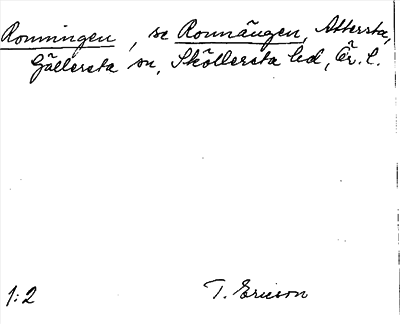 Ronningen, se Ronnängen, Attersta,
Gällersta sn, Sköllersta hd, Ör. l.
1:2 T. Ericson